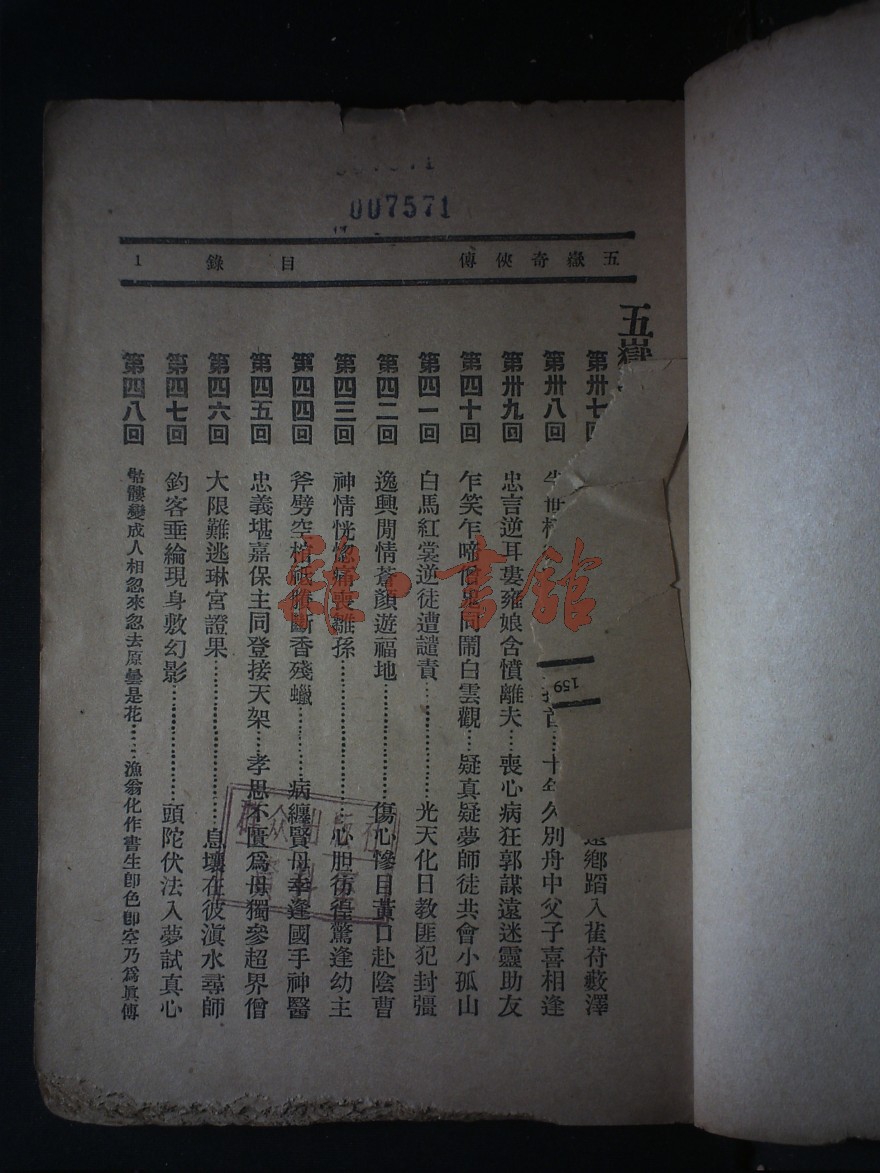 007571
五嶽奇俠傳 目錄 1
五嶽
第卅七回 鄉蹈入萑苻藪澤
第卅八回 十年久別舟中父子喜相逢
第卅九回 忠言逆耳婁雍娘含憤離夫……喪心病狂郭謀遠迷靈助友
第四十回 乍笑乍啼僧鬼同鬧白雲觀……疑真疑夢師徒共會小孤山
第四一回 白馬紅裳逆徒遭譴責……光天化日教匪犯封疆
第四二回 逸興閒情蒼顏遊福地……傷心慘目黃口赴陰曹
第四三回 神情恍惚痛喪雛孫……心胆彷徨驚逢幼主
第四四回 斧劈空棺祇賸斷香殘蠟……病纏賢母幸逢國手神醫
第四五回 忠義堪嘉保主同登接天架……孝思不匱爲母獨參超界僧
第四六回 大限難逃琳宮證果……息壤在彼滇水尋師
第四七回 釣客垂綸現身敷幻影……頭陀伏法入夢試真心
第四八回 骷髏變成人相忽來忽去原曇是花……漁翁化作書生卽色卽空乃爲眞傳
159
雜·書館